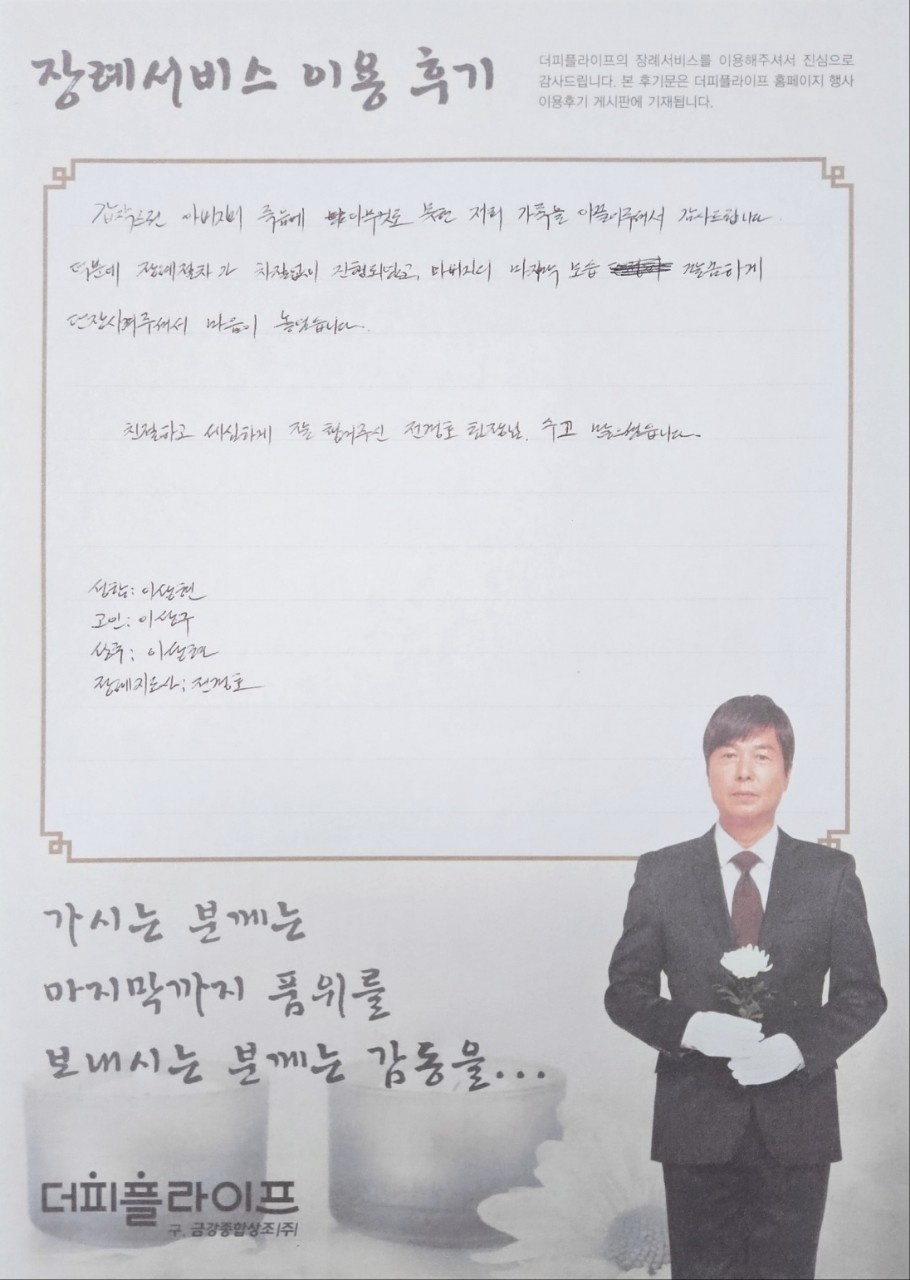 장례서비스 이용 후기
더피플라이프의 장례서비스를 이용해주셔서 진심으로
감사드립니다. 본 후기문은 더피플라이프 홈페이지 행사
이용후기 게시판에 기재됩니다.
갑작스런 아버지의 죽음에 아무것도 못한 저희 가족을 이끌어주셔서 감사드립니다.
덕분에 장례절차가 차질없이 진행되었고, 아버지의 마지막 모습 깔끔하게
단장시켜주셔서 마음이 놓였습니다.
친절하고 세심하게 잘 챙겨주신 전경호 팀장님. 수고 많으셨습니다.
성함: 이상현
고인: 이상구
상주: 이상현
장례지도사: 전경호
가시는 분께는
마지막까지 품위를
보내시는 분께는 감동을...
더피플라이프
구. 금강종합상조(주)